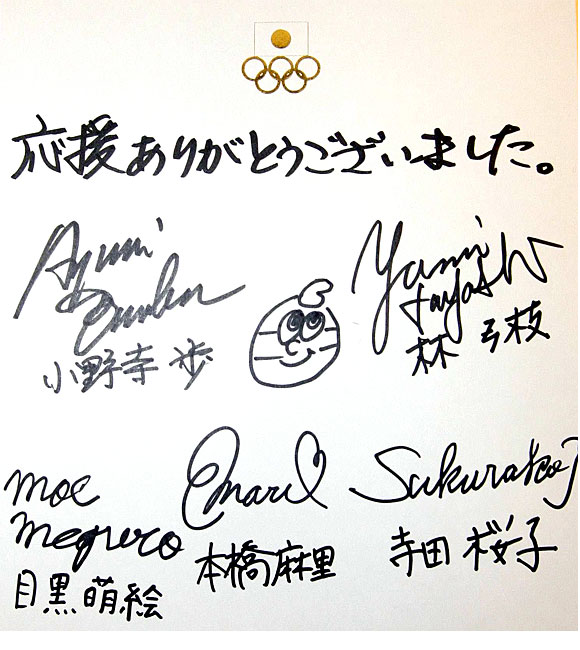 応援ありがとうございました。
Ayumi
小野寺 歩
Yumi
Hayashi
林 弓枝
Moe
Meguro
目黒 萌絵
Mari
本橋麻里
Sakurako T
寺田 桜子